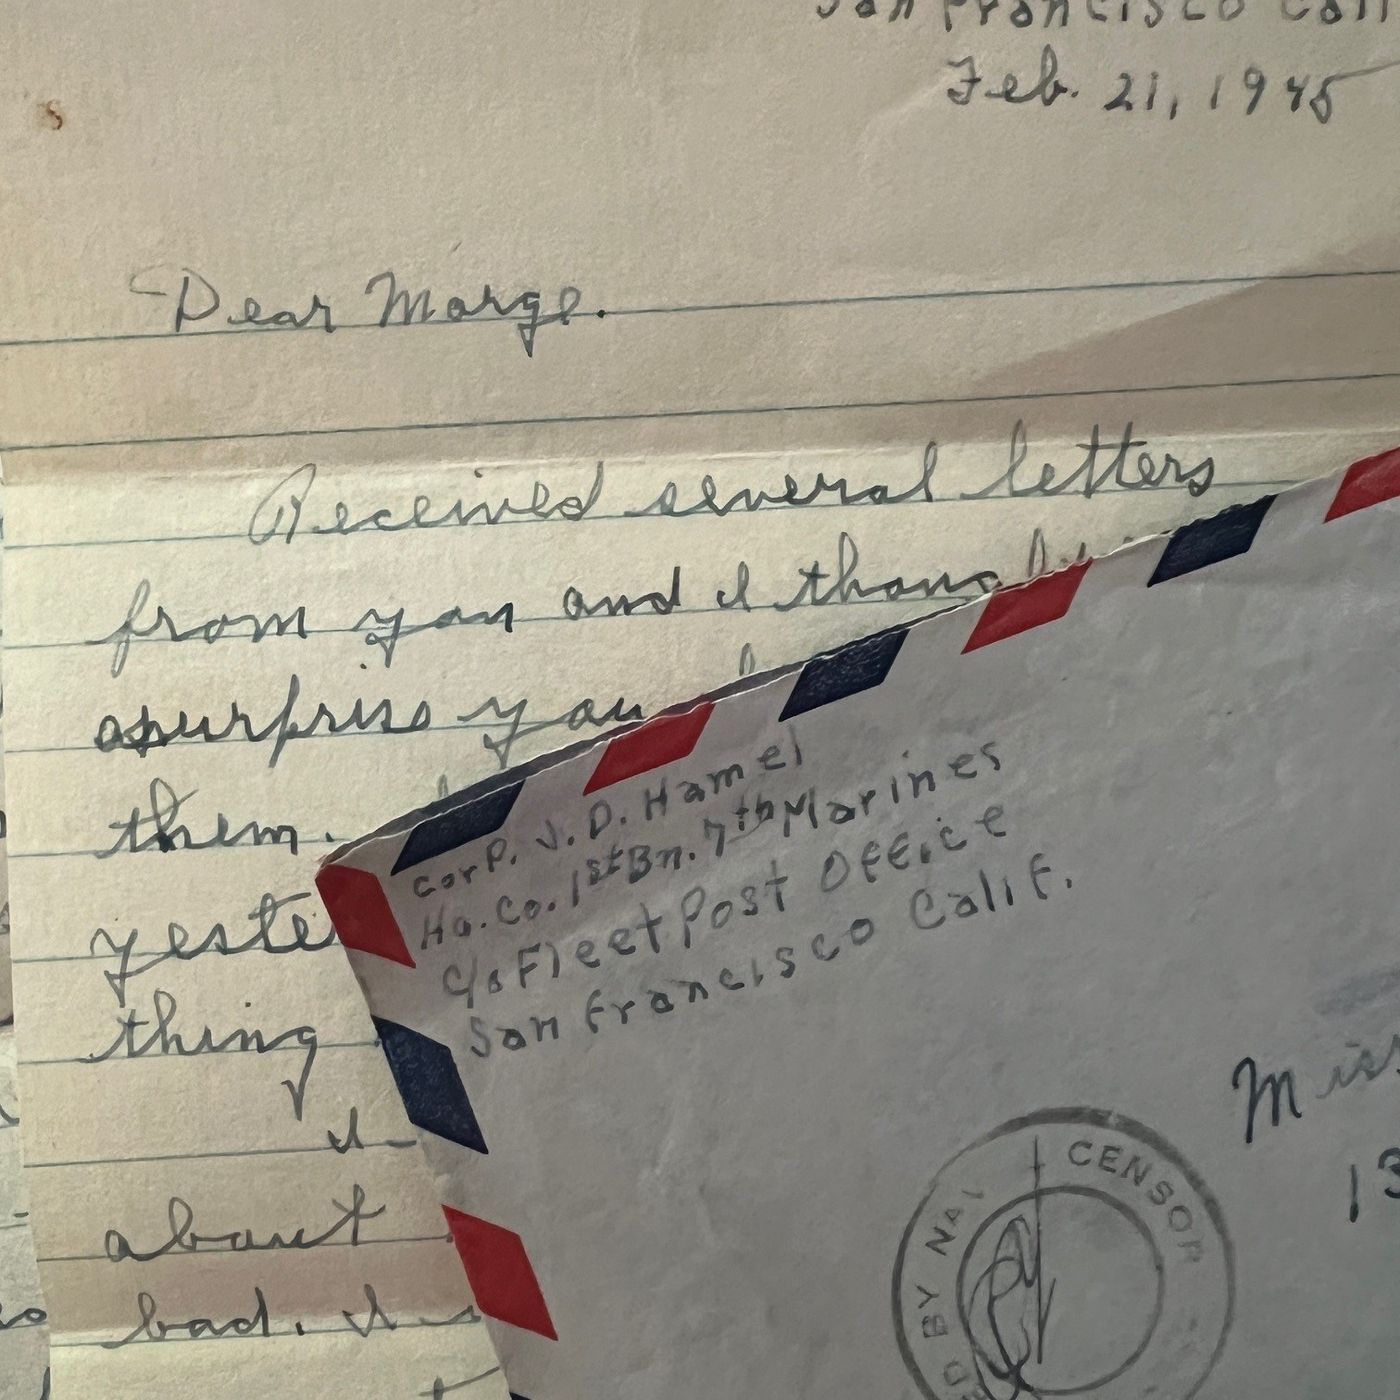 San Francisco Cali
Feb. 21, 1945
Dear Marge.
Received several letters
from you and I thought
surprise you
them.
yeste
thing
I
about
bad. I
Corp. J. D. Hamel
Hq. Co. 1st Bn. 7th Marines
c/o Fleet Post Office
San Francisco Calif.
Miss
13
ED BY NAVAL CENSOR